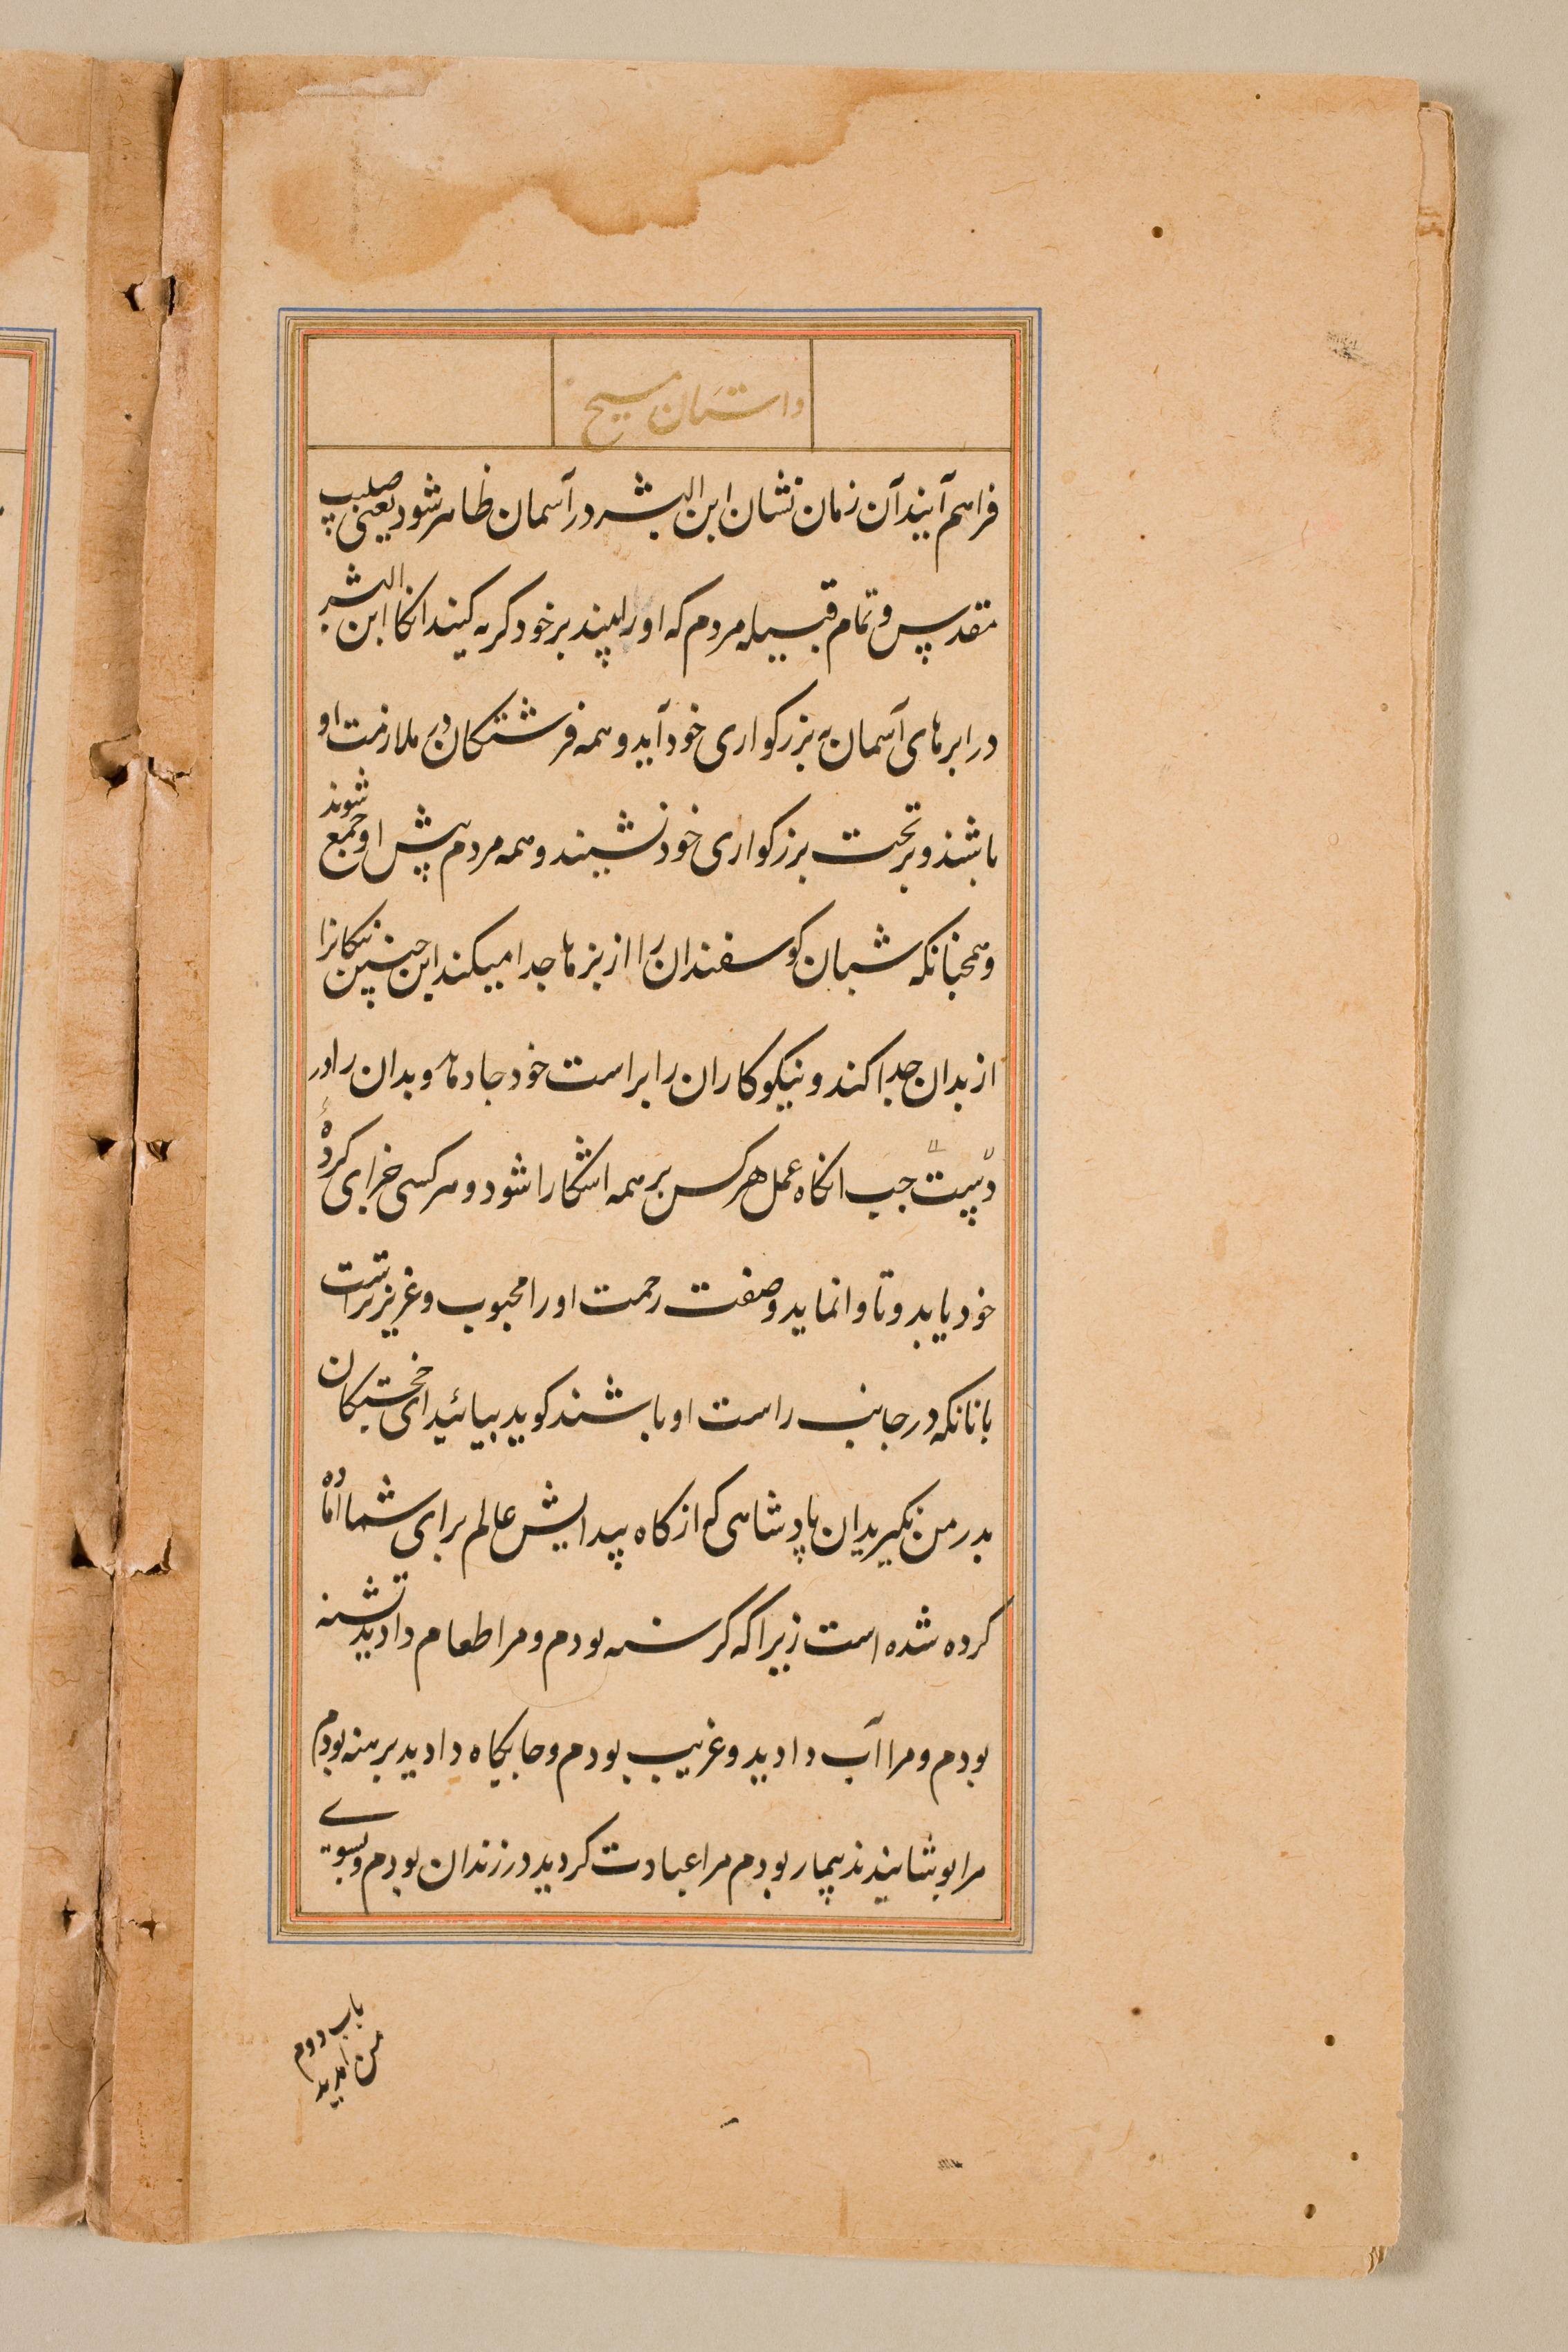 داستان مسیح
فراهم آیند آن زمان نشان ابن البشر در آسمان ظاهر شود یعنی صلیب
مقدس و تمام قبیله مردم که او را بینند بر خود کریه کنند انکا ابن البشر
در ابرهای آسمان به بزرکواری خود آید و همه فرشتکان در ملازمت او
باشند و بر تخت بزرکواری خود نشیند و همه مردم پیش او جمع شوند
و همچنانکه شبان کوسفندان را از بزها جدا میکند این چنین نیکانرا
از بدان جدا کند و نیکوکاران را براست خود جا دهد و بدان را در
دست چپ انکاه عمل هرکس بر همه اشکارا شود و هر کسی جزای کردهٔ
خود یابد و تا وا نماید و صفت رحمت او را محبوب و عزیزتر است
بانانکه در جانب راست او باشند کوید بیائید ای خجستکان
پدر من بکیرید ان پادشاهی که از کاه پیدایش عالم برای شما اماده
کرده شده است زیرا که کرسنه بودم و مرا طعام دادید تشنه
بودم و مرا آب دادید و غریب بودم و جایکاه دادید برهنه بودم
مرا پوشانیدند بیمار بودم مرا عیادت کردید در زندان بودم و بسوی
باب دوم
من امدید